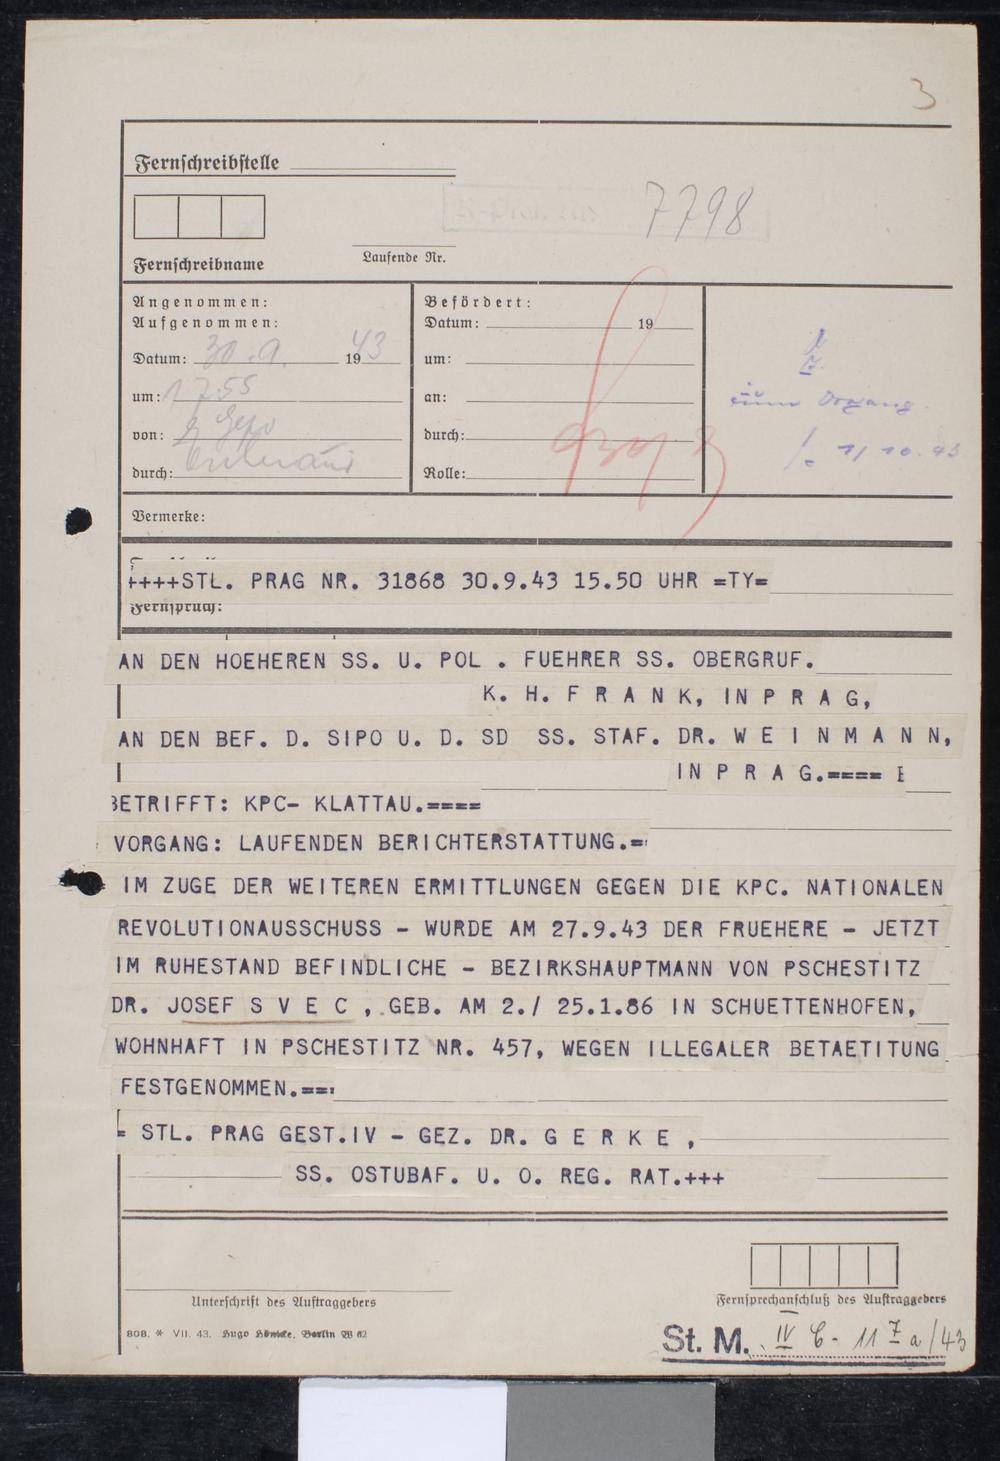 3
Fernschreibstelle
7798
Fernschreibname
Laufende Nr.
Angenommen:
Aufgenommen:
Datum: 30.9. 1943
um: 1755
von:
durch:
Befördert:
Datum: 19
um:
an:
durch:
Rolle:
zum Vorgang
1/10.43
Vermerke:
++++STL. PRAG NR. 31868 30.9.43 15.50 UHR =TY=
Fernspruch:
AN DEN HOEHEREN SS. U. POL . FUEHRER SS. OBERGRUF.
K. H. F R A N K, IN P R A G,
AN DEN BEF. D. SIPO U. D. SD SS. STAF. DR. W E I N M A N N,
IN P R A G.====
BETRIFFT: KPC- KLATTAU.====
VORGANG: LAUFENDEN BERICHTERSTATTUNG.=
IM ZUGE DER WEITEREN ERMITTLUNGEN GEGEN DIE KPC. NATIONALEN
REVOLUTIONAUSSCHUSS - WURDE AM 27.9.43 DER FRUEHERE - JETZT
IM RUHESTAND BEFINDLICHE - BEZIRKSHAUPTMANN VON PSCHESTITZ
DR. JOSEF S V E C , GEB. AM 2./ 25.1.86 IN SCHUETTENHOFEN,
WOHNHAFT IN PSCHESTITZ NR. 457, WEGEN ILLEGALER BETAETITUNG
FESTGENOMMEN.===
= STL. PRAG GEST.IV - GEZ. DR. G E R K E ,
SS. OSTUBAF. U. O. REG. RAT.+++
Unterschrift des Auftraggebers
Fernsprechanschluß des Auftraggebers
808. * VII. 43. Hugo Hömicke, Berlin W 62
St. M. IV C - 11 Z a/43